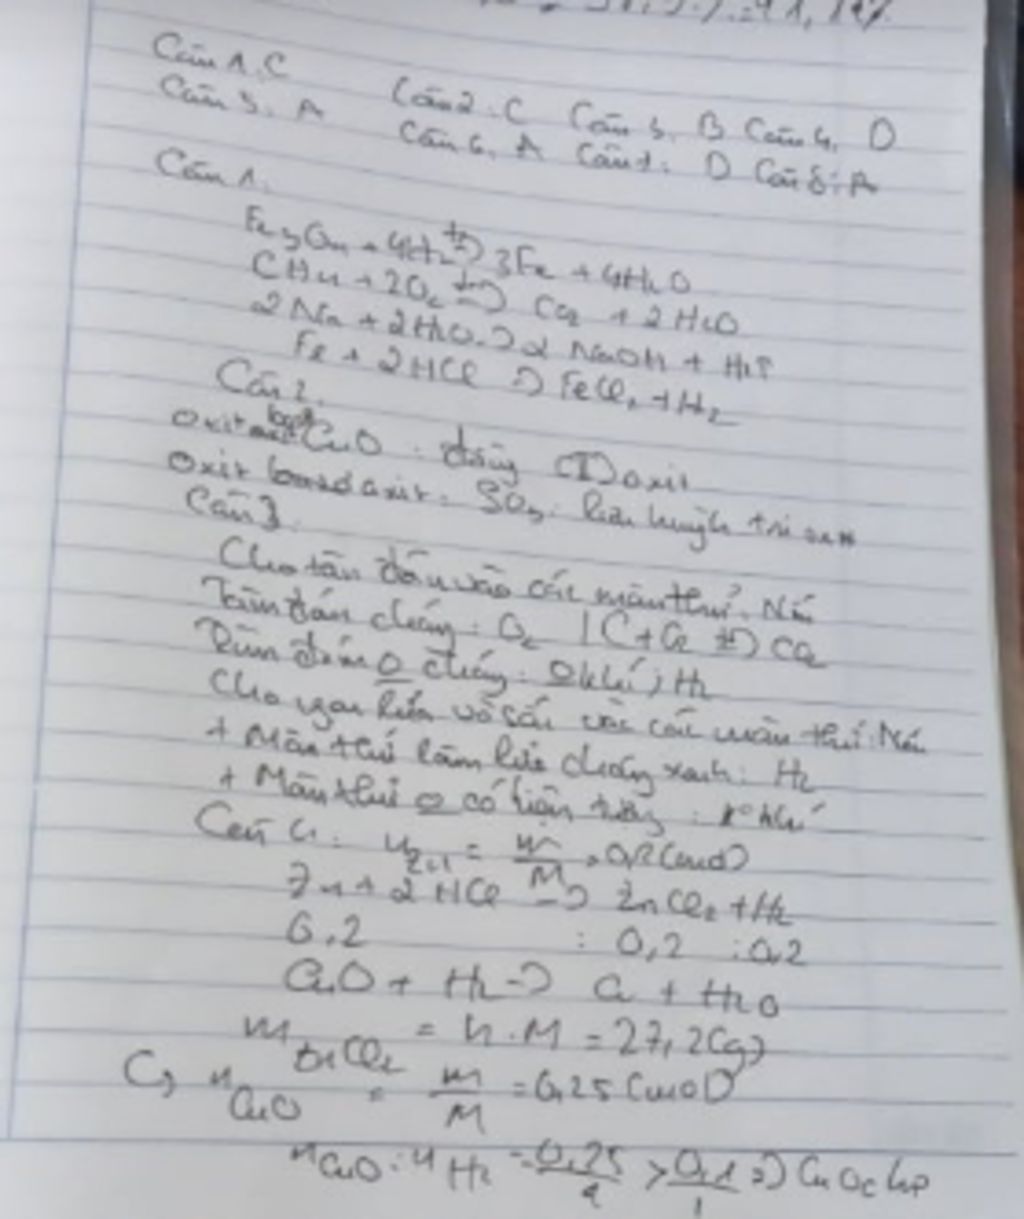 Câu 1. C Câu 2. C Câu 3. B Câu 4. D
Câu 5. A Câu 6. A Câu 7. D Câu 8: A
Câu 1.
Fe3O4 + 4H2 t°→ 3Fe + 4H2O
CH4 + 2O2 t°→ CO2 + 2H2O
2Na + 2H2O → 2NaOH + H2↑
Fe + 2HCl → FeCl2 + H2
Câu 2.
oxit bazơ CuO : đồng (II) oxit
oxit axit : SO3 : lưu huỳnh tri oxit
Câu 3
Cho tàn đóm vào các mẫu thử. Nếu
Tàn đóm cháy : O2 (C + O2 t°→ CO2
Tàn đóm O cháy : O khí ; H2
Cho que lửa vào các mẫu thử. Nếu
+ Mẫu thử làm lửa cháy xanh : H2
+ Mẫu thử O có hiện tượng : k° khí
Câu 4 : nZn = m/M = 0,2 (mol)
Zn + 2HCl → ZnCl2 + H2
0,2 : 0,2 : 0,2
CuO + H2 → Cu + H2O
m ZnCl2 = n.M = 27,2 (g)
C, n CuO = m/M = 0,25 (mol)
nCuO : nH2 =